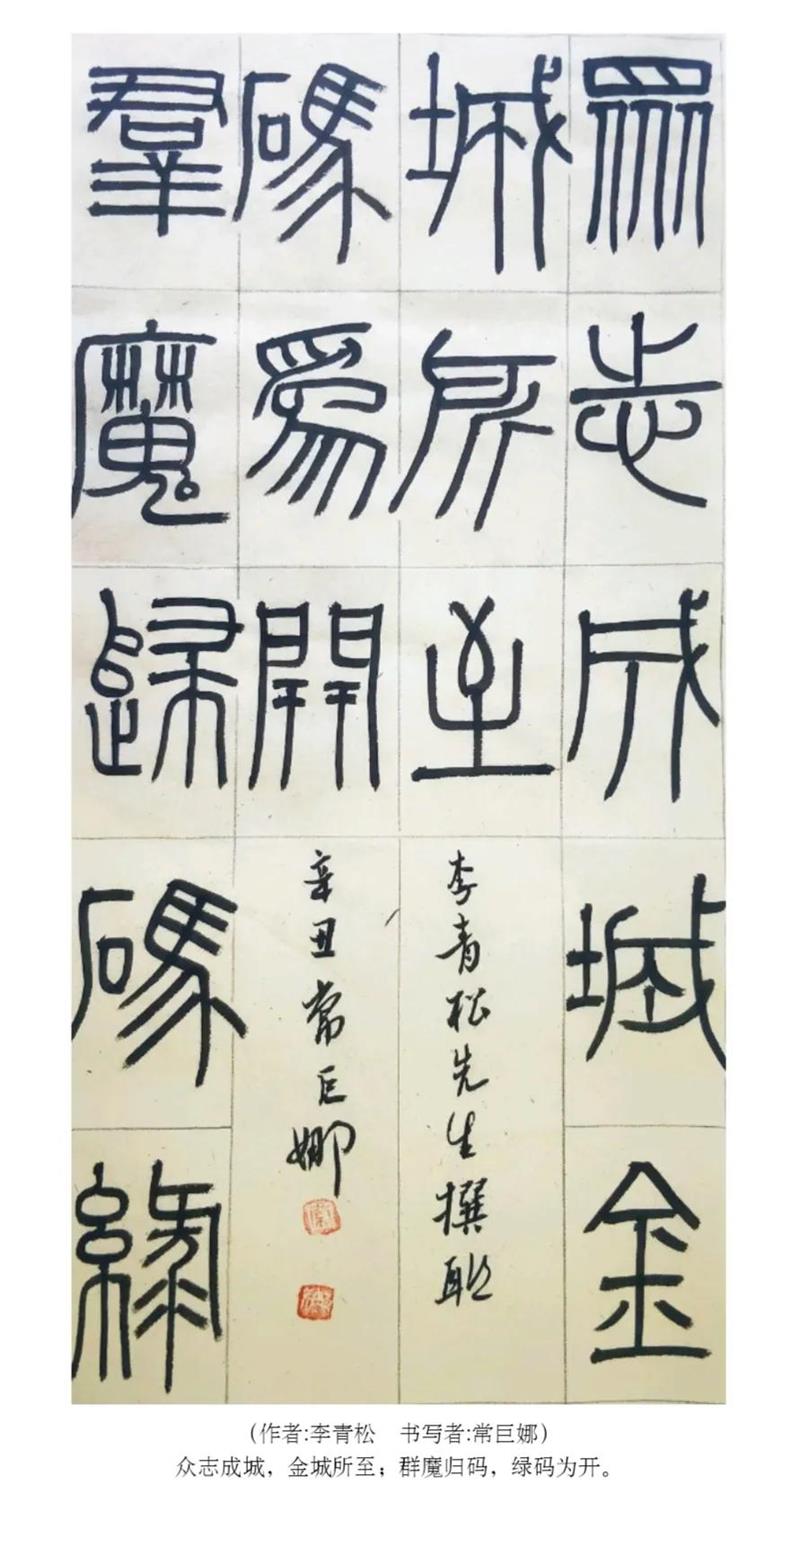 眾志成城金
城所至
李青松先生撰联
羣魔歸碼綠
碼爲開
辛丑常巨娜
（作者:李青松　书写者:常巨娜）
众志成城，金城所至；群魔归码，绿码为开。